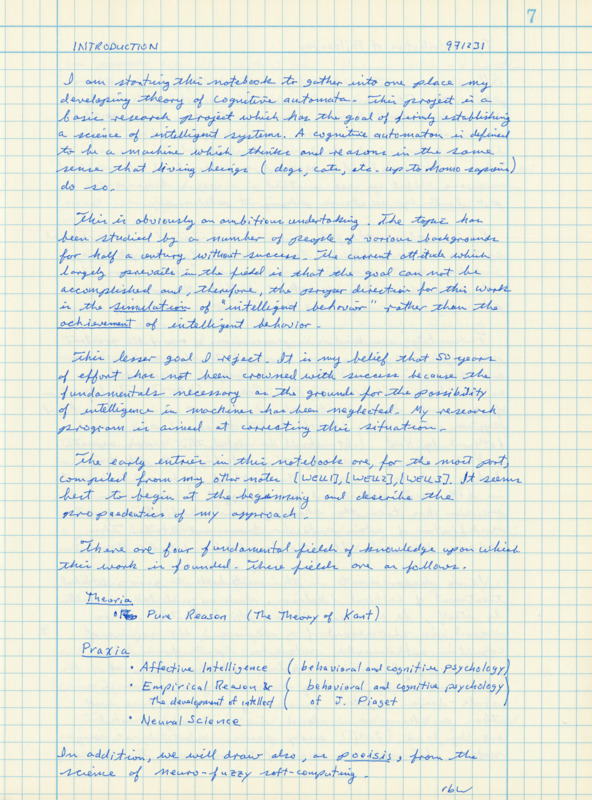 7
INTRODUCTION 971231
I am starting this notebook to gather into one place my
developing theory of cognitive automata. This project is a
basic research project which has the goal of firmly establishing
a science of intelligent systems. A cognitive automaton is defined
to be a machine which thinks and reasons in the same
sense that living beings (dogs, cats, etc. up to Homo sapiens)
do so.
This is obviously an ambitious undertaking. The topic has
been studied by a number of people of various backgrounds
for half a century without success. The current attitude which
largely prevails in the field is that the goal can not be
accomplished and, therefore, the proper direction for this work
is the simulation of "intelligent behavior" rather than the
achievement of intelligent behavior.
This lesser goal I reject. It is my belief that 50 years
of effort has not been crowned with success because the
fundamentals necessary as the grounds for the possibility
of intelligence in machines has been neglected. My research
program is aimed at correcting this situation.
The early entries in this notebook are, for the most part,
compiled from my other notes [WELL1], [WELL2], [WELL3]. It seems
best to begin at the beginning and describe the
propaedeutics of my approach.
There are four fundamental fields of knowledge upon which
this work is founded. These fields are as follows.
Theoria
• Pure Reason (The Theory of Kant)
Praxia
• Affective Intelligence (behavioral and cognitive psychology)
• Empirical Reason & (behavioral and cognitive psychology
the development of intellect of J. Piaget)
• Neural Science
In addition, we will draw also, as poeisis, from the
science of neuro-fuzzy soft-computing.
rbw